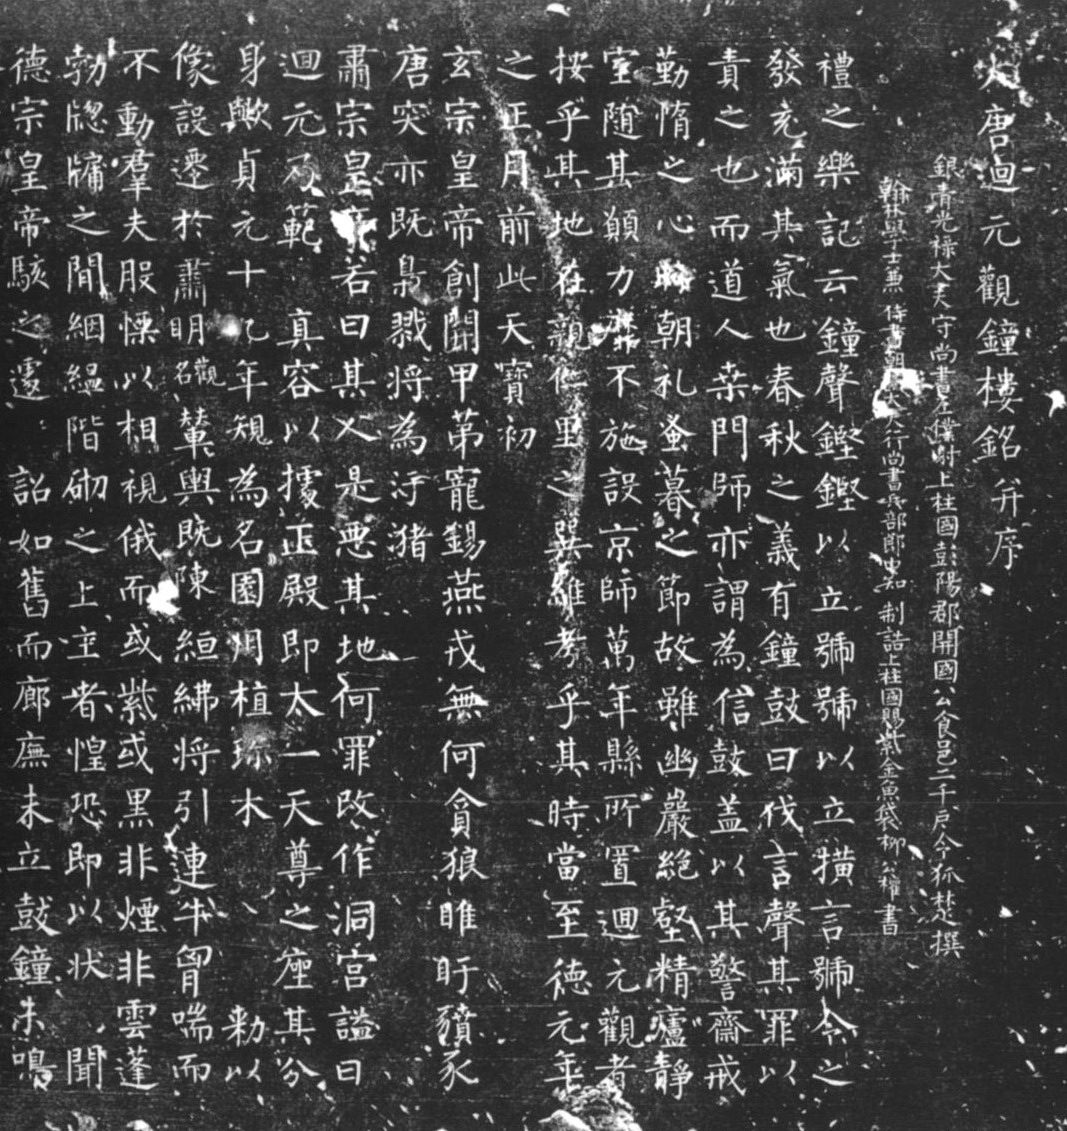 大唐迴元觀鐘樓銘并序
銀青光祿大夫守尚書左僕射上柱國彭陽郡開國公食邑二千戶令狐楚撰
翰林學士兼侍書朝大夫行尚書兵部郎中知制誥上柱國賜紫金魚袋柳公權書
禮之樂記云鐘聲鏗鏗以立號號以立撗言號令之
發充滿其氣也春秋之義有鐘鼓曰伐言聲其罪以
責之也而道人桒門師亦謂為信鼓盖以其警齋戒
勤惰之心時朝礼蚤暮之節故雖幽嚴絕壑精廬靜
室随其願力靡不施設京師萬年縣所置迴元觀者
按乎其地在親仁里之巽維考乎其時當至德元年
之正月前此天寶初
玄宗皇帝創開甲第寵錫燕戎無何貪狼睢盱豶豕
唐突亦既梟戮将為洿潴
肅宗皇帝若曰其人是惡其地何罪改作洞宮謚曰
迴元乃範真容以據正殿即太一天尊之座其分
身歟貞元十九年規為名園用植珎木勑以
像設遷於肅明觀名輦輿既陳縆紼将引連牛胷喘而
不動羣夫股慄以相視俄而或紫或黑非煙非雲蓬
勃牕牖之間絪縕階砌之上主者惶恐即以状聞
德宗皇帝駭之遽詔如舊而廊廡未立鼓鐘未鳴